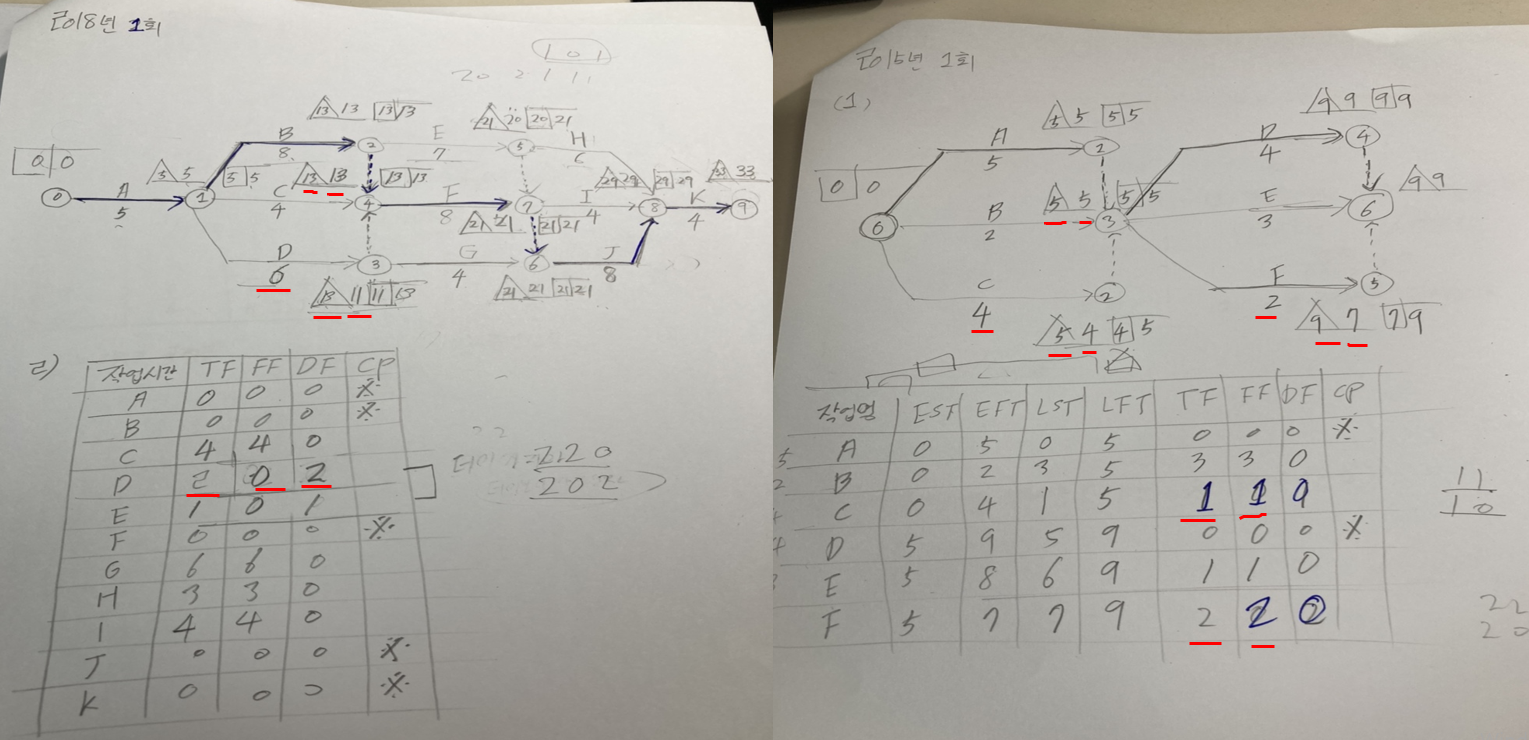 2018년 1회
1 0 1
20 2 1 1 1
13 13 13 13
21 20 20 21
B
8
2
E
7
5
H
6
0 0
5 5
5 5
13 13
13 13
29 29
29 29
33 33
0
A
5
1
C
4
4
F
8
7
I
4
8
K
4
9
21 21
21 21
D
6
3
G
4
6
J
8
13 11 11 13
21 21 21 21
2)
작업시간 TF FF DF CP
A 0 0 0 ※
B 0 0 0 ※
C 4 4 0
D 2 0 2
E 1 0 1
F 0 0 0 ※
G 6 6 0
H 3 3 0
I 4 4 0
J 0 0 0 ※
K 0 0 0 ※
220
202
2015년 1회
(1)
5 5 5 5
9 9 9 9
A
5
1
D
4
4
0 0
5 5
5 5
9 9
0
B
2
3
E
3
6
C
4
2
F
2
5
5 4 4 5
9 7 7 9
작업명 EST EFT LST LFT TF FF DF CP
A 0 5 0 5 0 0 0 ※
B 0 2 3 5 3 3 0
C 0 4 1 5 1 1 0
D 5 9 5 9 0 0 0 ※
E 5 8 6 9 1 1 0
F 5 7 7 9 2 2 0
11
10
22
20